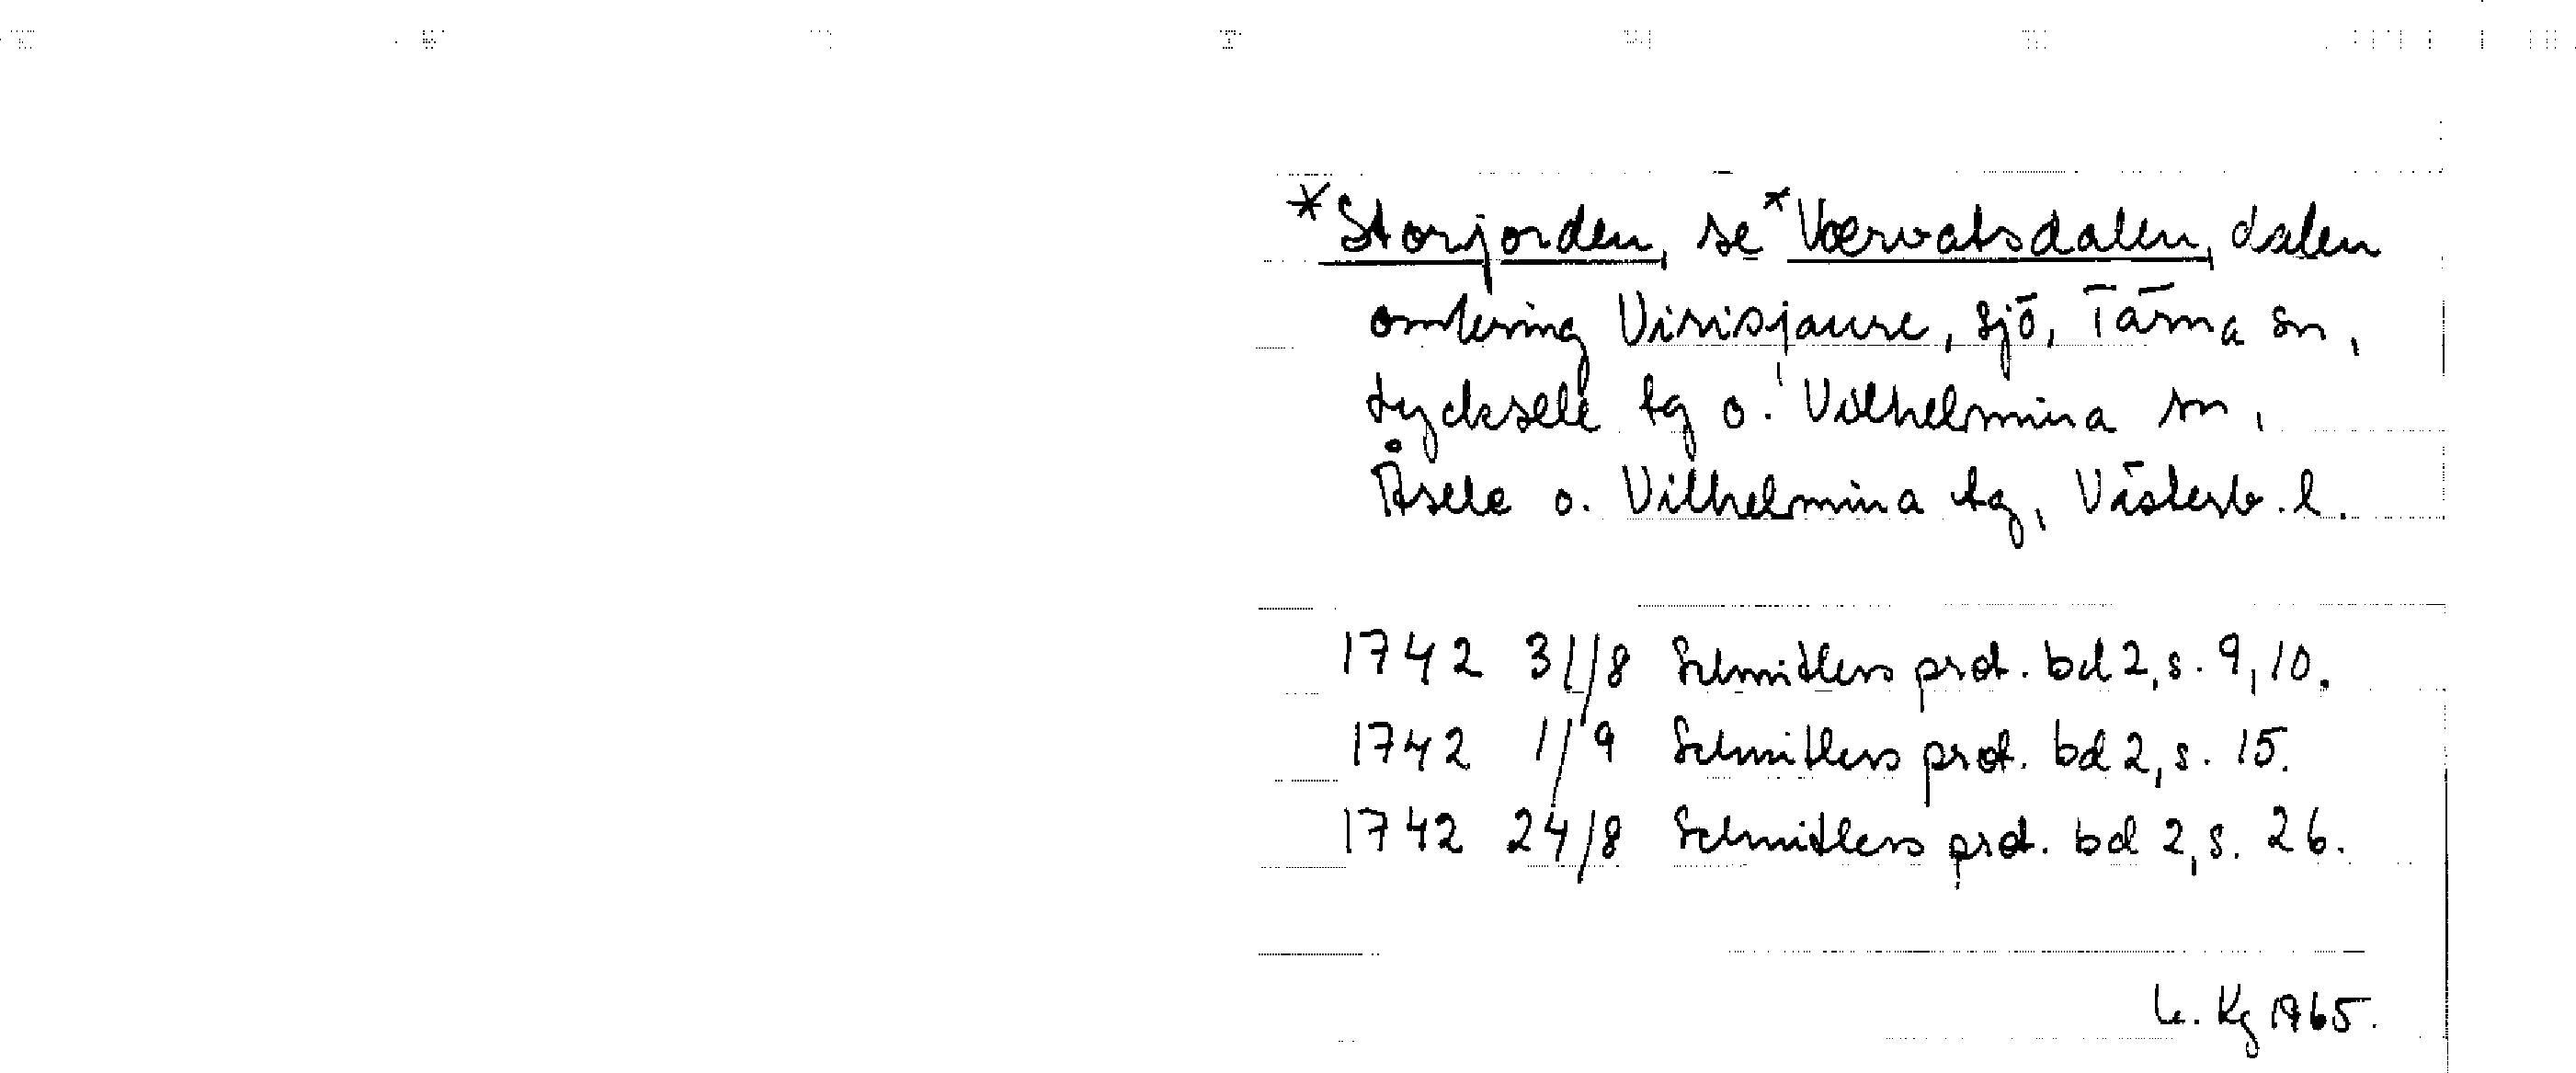 *Storjorden, se *Værvatsdalen, dalen
omkring Virisjaure, sjö, Tärna sn,
Lycksele tg o. Vilhelmina sn,
Åsele o. Vilhelmina tg, Västerb. l.
1742 31/8 Schnitlers prot. bd 2, s. 9, 10.
1742 1/9 Schnitlers prot. bd 2, s. 15.
1742 24/8 Schnitlers prot. bd 2, s. 26.
Kg 1965.